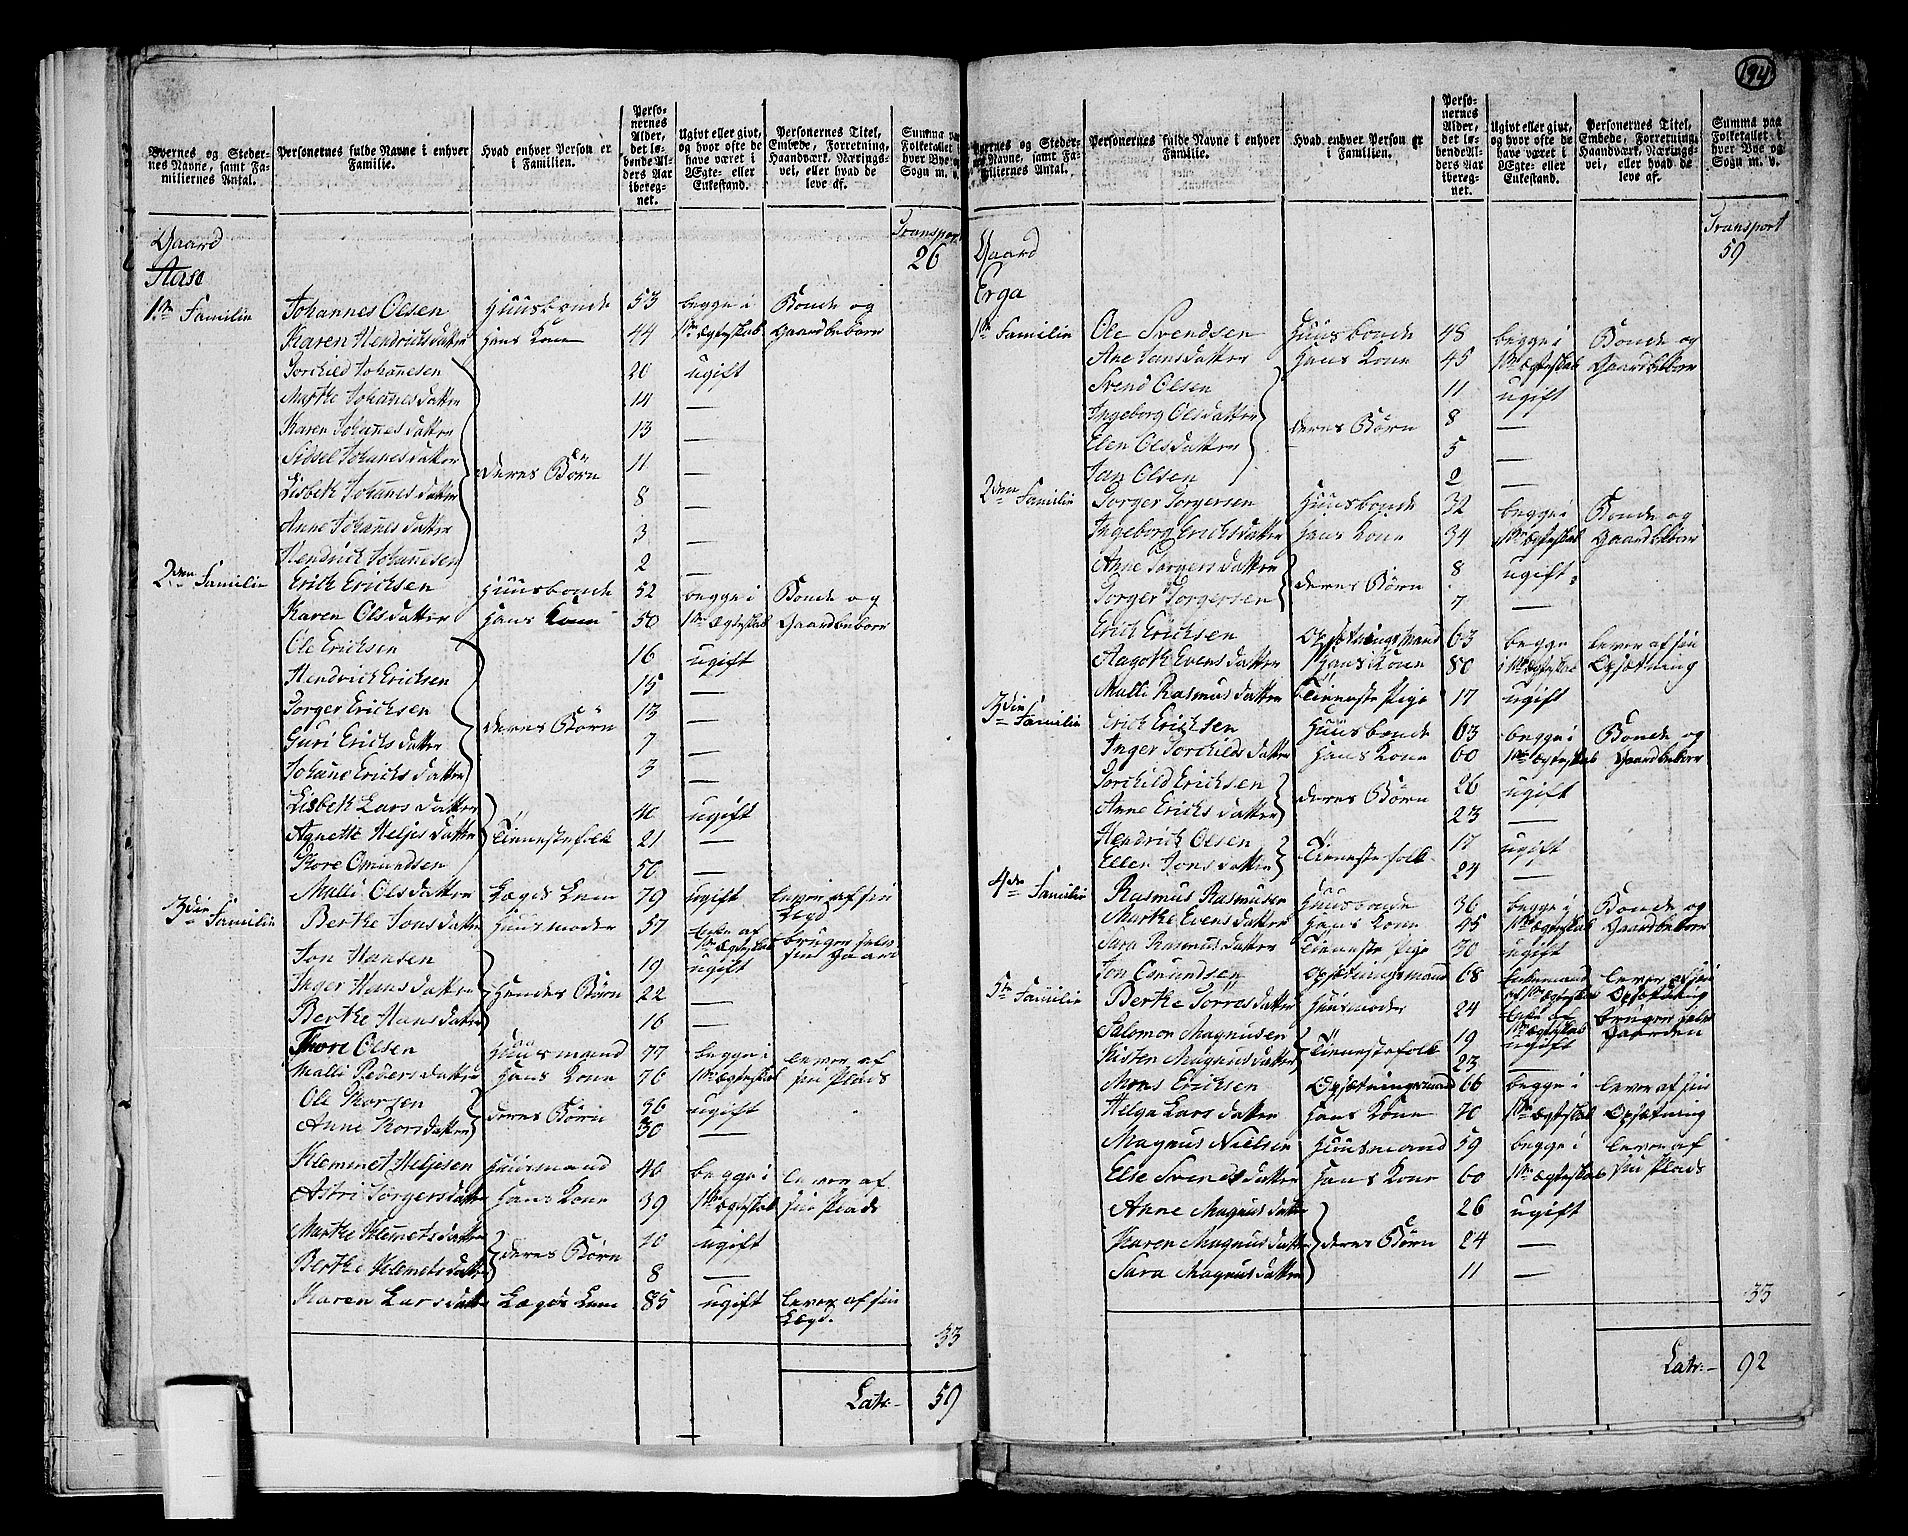 194
Byernes og Stedernes Navne, samt Familiernes Antal.
Personernes fulde Navne i enhver Familie.
Hvad enhver Person er i Familien.
Personernes Alder, det løbende Alders Aar iberegnet.
Ugivt eller givt, og hvor ofte de have været i Ægte- eller Enkestand.
Personernes Titel, Embede, Forretning, Haandværk, Næringsvei, eller hvad de leve af.
Summa paa Folketallet i hver Bye og Sogn m. v.
Transport
26
Gaard
Aase
1ste Familie Johannes Olsen Huusbonde 53 begge i Bonde og
Karen Hendrichsdatter Hans Kone 44 1ste Ægteskab Gaardbeboer
Torchild Johannesen 20 ugift
Marthe Johanesdatter 14 —
Karen Johanesdatter 13 —
Sidsel Johanesdatter deres Børn 11 —
Lisbeth Johanesdatter 8 —
Anne Johanesdatter 3 —
Hendrich Johannesen 2 —
2den Familie Erich Erichsen Huusbonde 52 begge i Bonde og
Karen Olsdatter Hans Kone 50 1ste Ægteskab Gaardbeboer
Ole Erichsen 16 ugift
Hendrich Erichsen 15 —
Torger Erichsen 13 —
Guri Erichsdatter deres Børn 7 —
Johane Erichsdatter 3 —
Lisbeth Larsdatter 40 ugift
Agnethe Heljesdatter Tienestefolk 21 —
Thore Omundsen 50 —
Malli Olsdatter Lægds Lem 79 ugift lever af sin Legd
3die Familie Berthe Jonsdatter Huusmoder 57 Enke af 1ste Ægteskab bruger selv sin Gaard
Jon Hansen 19 ugift
Inger Hansdatter Hendes Børn 22 —
Berthe Hansdatter 16 —
Thore Olsen Huusmand 77 begge i lever af
Malli Pedersdatter Hans Kone 76 1ste Ægteskab sin Plads
Ole Thorsen deres Børn 36 ugift
Anne Thorsdatter 30 —
Klemmet Heljesen Huusmand 40 begge i lever af
Astri Torgersdatter Hans Kone 39 1ste Ægteskab sin Plads
Marthe Klemetsdatter deres Børn 10 ugift
Berthe Klemetsdatter 8 —
Karen Larsdatter Lægds Lem 85 ugift lever af sin Lægd.
33
Latr:- 59
Byernes og Stedernes Navne, samt Familiernes Antal.
Personernes fulde Navne i enhver Familie.
Hvad enhver Person er i Familien.
Personernes Alder, det løbende Alders Aar iberegnet.
Ugivt eller givt, og hvor ofte de have været i Ægte- eller Enkestand.
Personernes Titel, Embede, Forretning, Haandværk, Næringsvei, eller hvad de leve af.
Summa paa Folketallet i hver Bye og Sogn m. v.
Transport
59
Gaard
Erga
1ste Familie Ole Svendsen Huusbonde 48 begge i Bonde og
Ane Jansdatter Hans Kone 45 1ste Ægteskab Gaardbeboer
Svend Olsen 11 ugift
Ingeborg Olsdatter deres Børn 8 —
Elen Olsdatter 5 —
Jan Olsen 2 —
2den Familie Torger Torgersen Huusbonde 32 begge i Bonde og
Ingeborg Erichsdatter Hans Kone 34 1ste Ægteskab Gaardbeboer
Anne Torgersdatter deres Børn 8 ugift
Torger Torgersen 7 —
Erich Erichsen Opsætningsmand 63 begge lever af sin
Aagoth Evensdatter Hans Kone 80 i 1ste Ægteskab Opsætning
Malli Rasmusdatter Tieneste Pige 17 ugift
3die Familie Erich Erichsen Huusbonde 63 begge i Bonde og
Inger Torchildsdatter Hans Kone 60 1ste Ægteskab Gaardbeboer
Torchild Erichsen deres Børn 26 ugift
Anne Erichsdatter 23 —
Hendrich Olsen Tienestefolk 17 ugift
Ellen Jonsdatter 24 —
4de Familie Rasmus Rasmusen Huusbonde 36 begge i Bonde og
Marthe Evensdatter Hans Kone 45 1ste Ægteskab Gaardbeboer
Sara Rasmusdatter Tieneste Pige 70 ugift
Jon Omundsen Opsætningsmand 68 Enkemand af 1ste Ægteskab lever af sin Opsætning
5te Familie Berthe Torresdatter Huusmoder 24 Enke af 1ste Ægteskab bruger selv Gaarden
Salomon Magnusen Tienestefolk 19 ugift
Kisten Magnusdatter 23 —
Mons Erichsen Opsætningsmand 66 begge i lever af sin
Helga Larsdatter Hans Kone 70 1ste Ægteskab Opsætning
Magnus Nielsen Huusmand 59 begge i lever af
Else Svendsdatter Hans Kone 60 1ste Ægteskab sin Plads
Anne Magnusdatter 26 ugift
Karen Magnusdatter deres Børn 24 —
Sara Magnusdatter 11 —
33
Latr:- 92